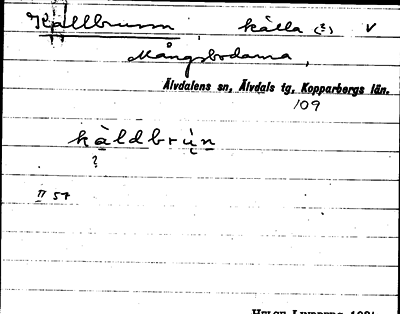 Källbrunn, källa (?) V
Mångsbodarna,
Älvdalens sn, Älvdals tg, Kopparbergs län.
109
kàldbrùn
?
II 57